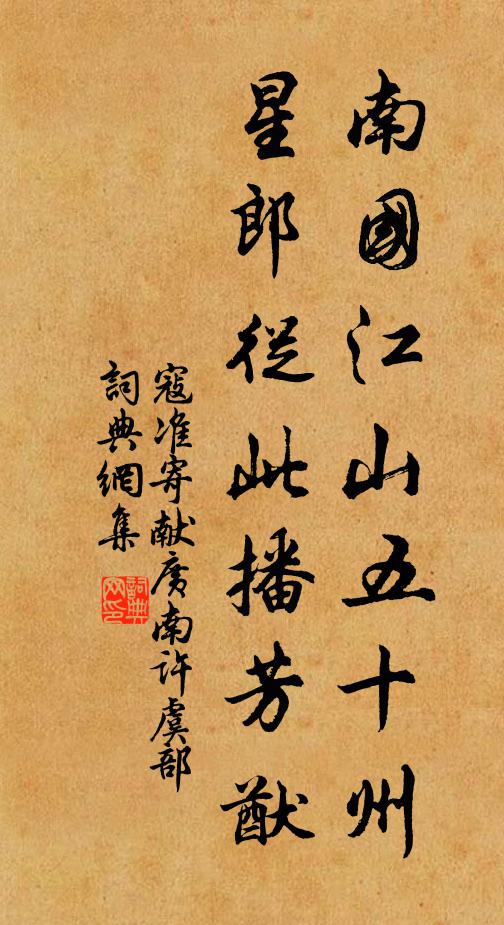 南國江山五十州
星郎從此播芳猷
寇准寄献廣南许虞部
詞典網集
詞典网印